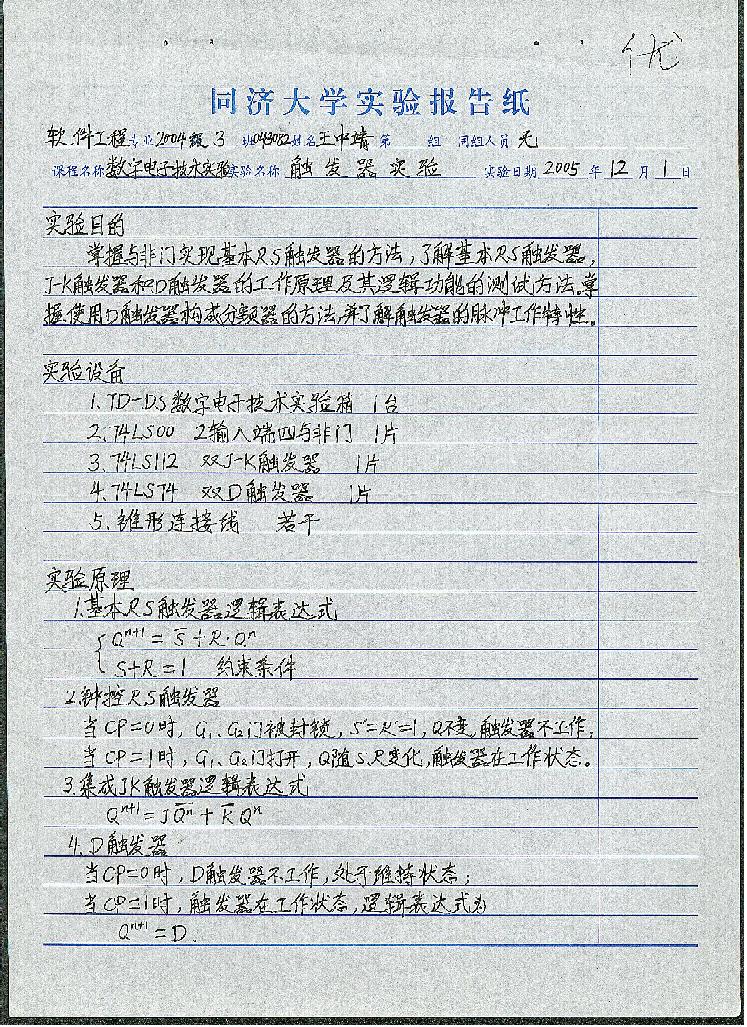 优
同济大学实验报告纸
软件工程专业2004级3班043082姓名王中靖第 组 同组人员 无
课程名称 数字电子技术实验 实验名称 触发器实验 实验日期 2005 年 12 月 1 日
实验目的
掌握与非门实现基本RS触发器的方法,了解基本RS触发器,
J-K触发器和D触发器的工作原理及其逻辑功能的测试方法。掌
握使用D触发器构成分频器的方法,并了解触发器的脉冲工作特性。
实验设备
1. TD-DS数字电子技术实验箱 1台
2. 74LS00 2输入端四与非门 1片
3. 74LS112 双J-K触发器 1片
4. 74LS74 双D触发器 1片
5. 锥形连接线 若干
实验原理
1.基本RS触发器逻辑表达式
Qⁿ⁺¹ = S̅ + R·Qⁿ
S+R=1 约束条件
2.钟控RS触发器
当CP=0时, G₁、G₂门被封锁, S'=R'=1, Q不变,触发器不工作;
当CP=1时, G₁、G₂门打开, Q随S.R变化,触发器在工作状态。
3.集成JK触发器逻辑表达式
Qⁿ⁺¹ = JQ̅ⁿ + K̅Qⁿ
4. D触发器
当CP=0时, D触发器不工作,处于维持状态;
当CP=1时,触发器在工作状态,逻辑表达式为
Qⁿ⁺¹=D.